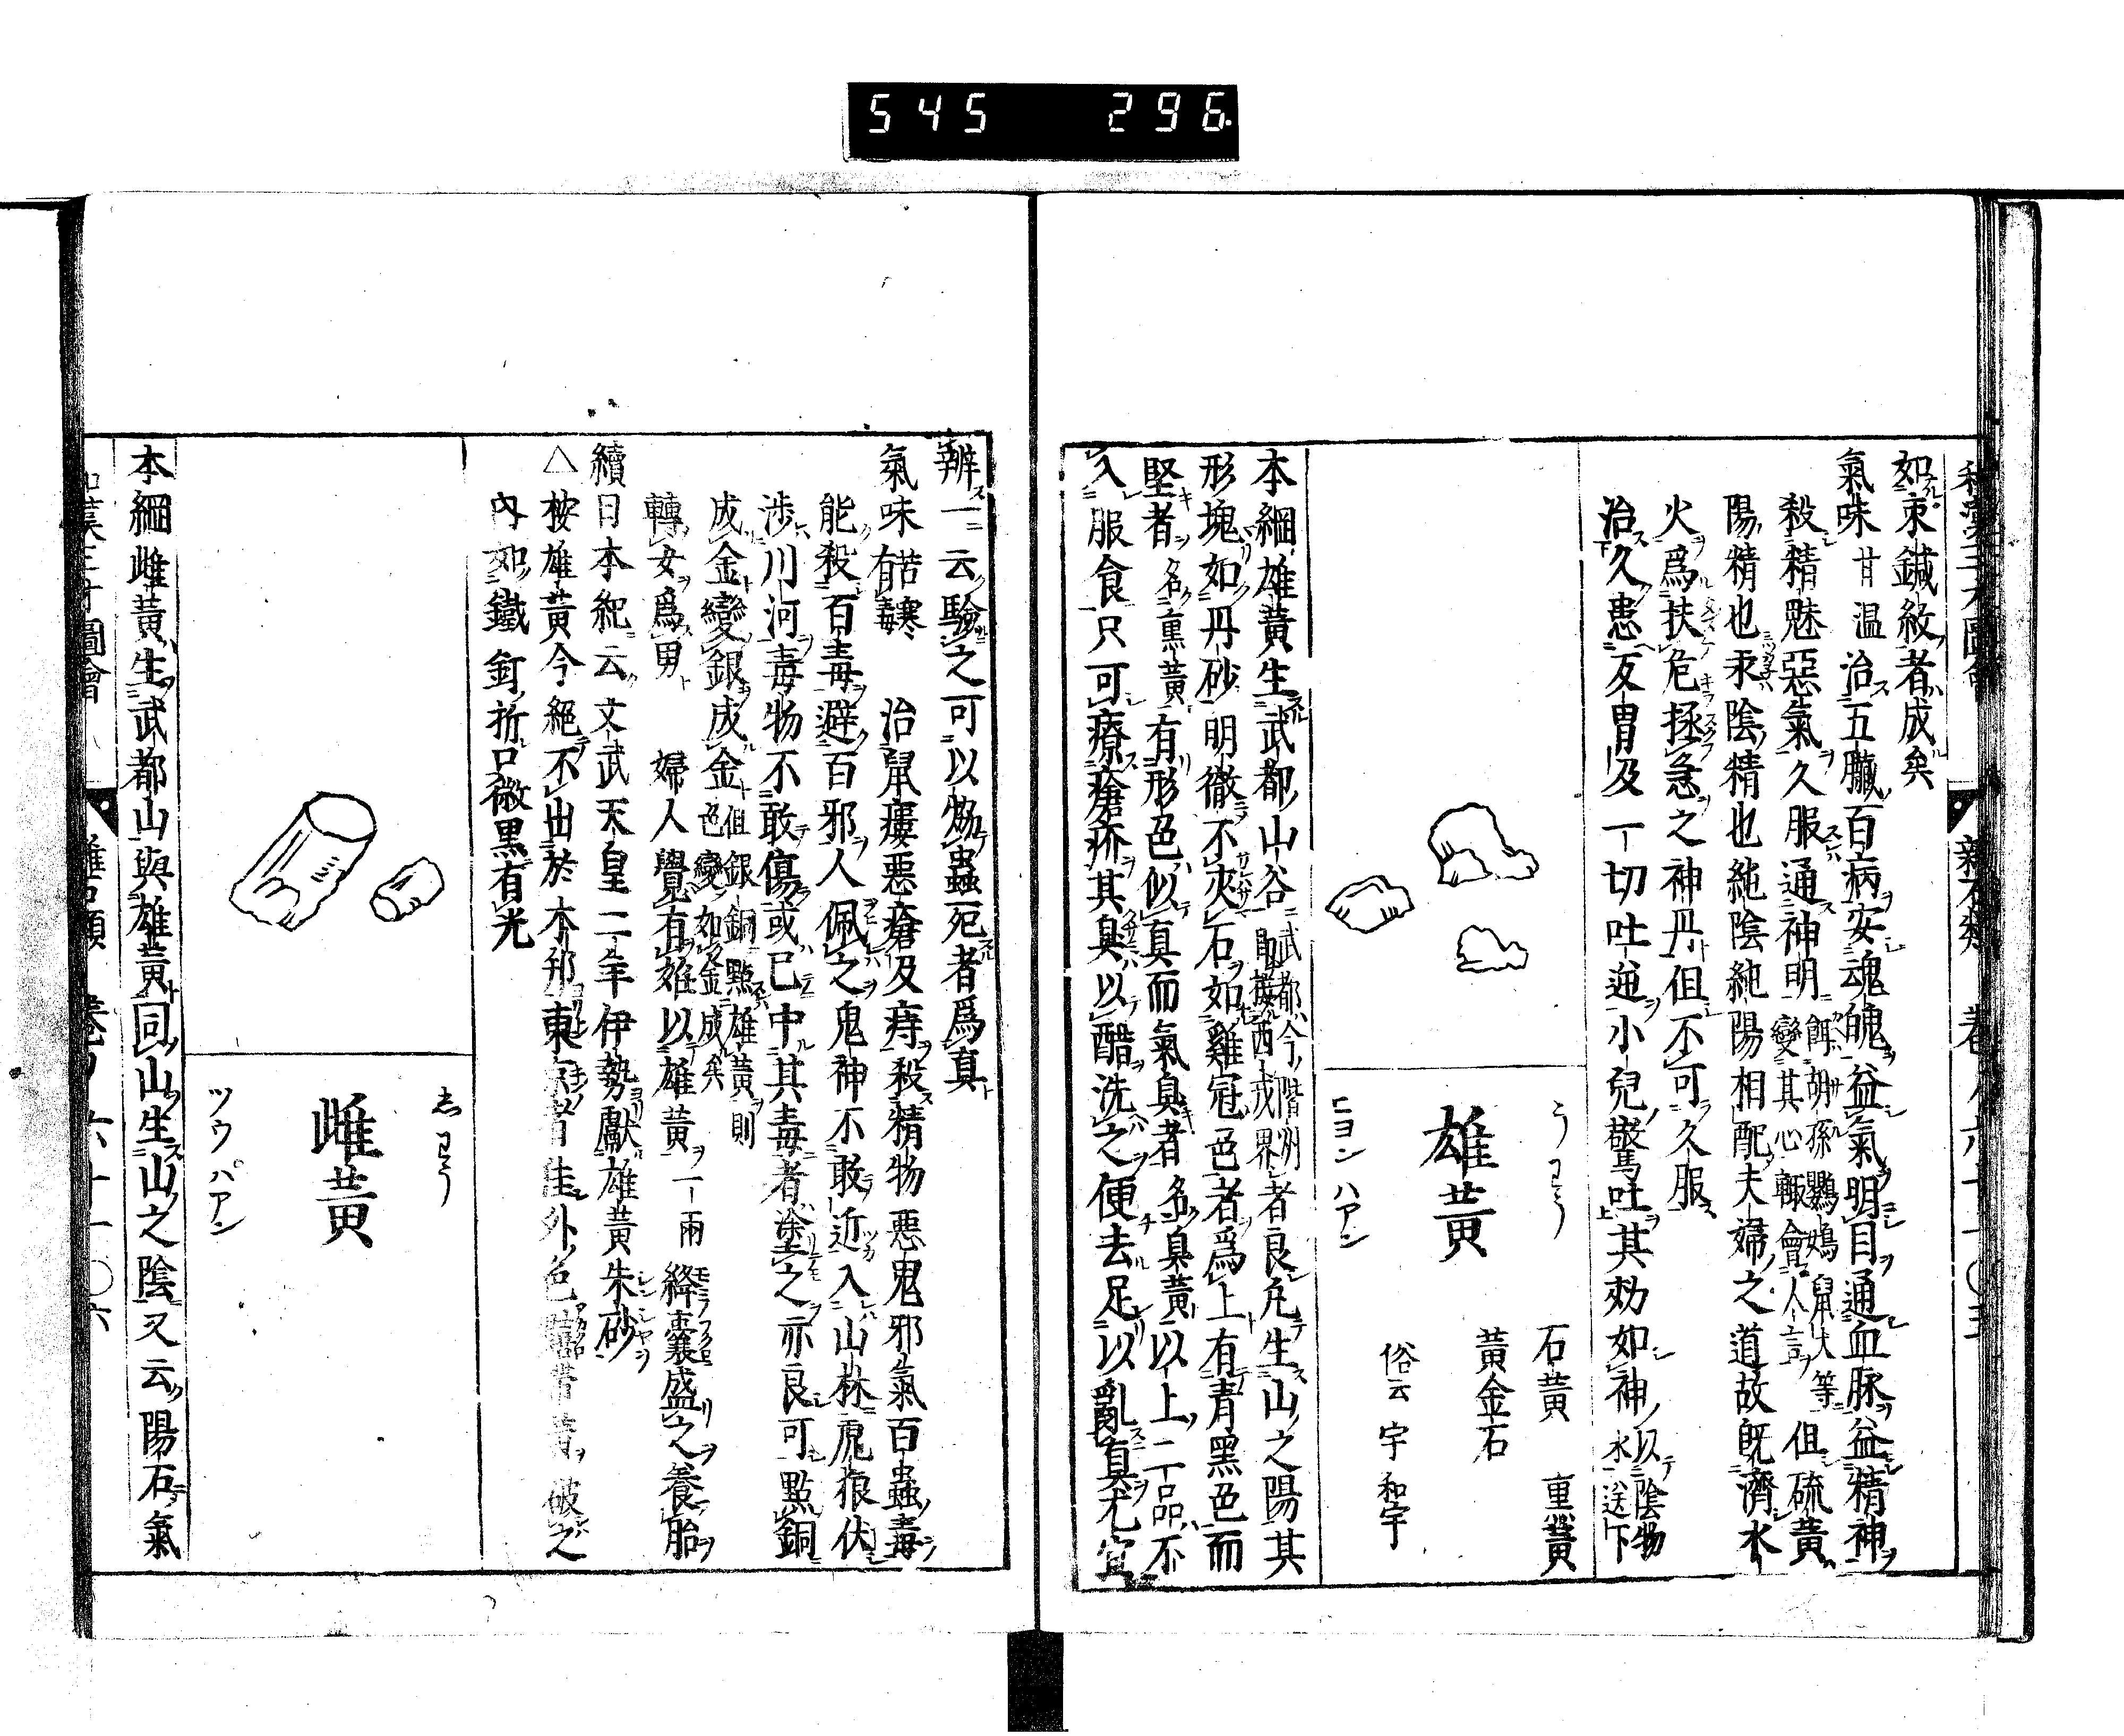 545 296
雜石類
如束鍼紋者成矣
氣味甘温治五臟百病安魂魄益氣明目通血脉益精神
殺精魅惡氣久服通神明餌胡孫鸚鵡鼠犬等變其心輙會人言但硫黃
陽精也汞陰精也純陰純陽相配夫婦之道故既濟水
火爲扶危拯急之神丹但不可久服
治久患反胃及一切吐逆小兒驚吐其効如神以陰物水送下
うわう
雄黃
ニヨンハアン
石黃 熏黃
黃金石
俗云 宇和宇
本綱雄黃生武都山谷武都今階州西戎界者良凡生山之陽其
形塊如丹砂明徹不夾石如雞冠色者爲上有青黑色而
堅者名熏黃有形色似真而氣臭者名臭黃以上二品不
入服食只可療瘡疥其臭以醋洗之便去足以亂真尤宜
辨一云驗之可以㷅蟲死者爲真
氣味苦寒有毒 治鼠瘻惡瘡及痔殺精物惡鬼邪氣百蟲毒
能殺百毒避百邪人佩之鬼神不敢近入山林虎狼伏
渉川河毒物不敢傷或已中其毒者塗之亦良可點銅
成金變銀成金但銀銅點雄黃則色變如金成矣
轉女爲男 婦人覺有雄以雄黃一兩絳囊盛之養胎
續日本紀云文武天皇二年伊勢獻雄黃朱砂
△按雄黃今絕不出於本邦東京者佳外色帶青破之
內如鐵釘折口微黑有光
しわう
雌黃
ツウパアン
本綱雌黃生武都山與雄黃同山生山之陰又云陽石氣